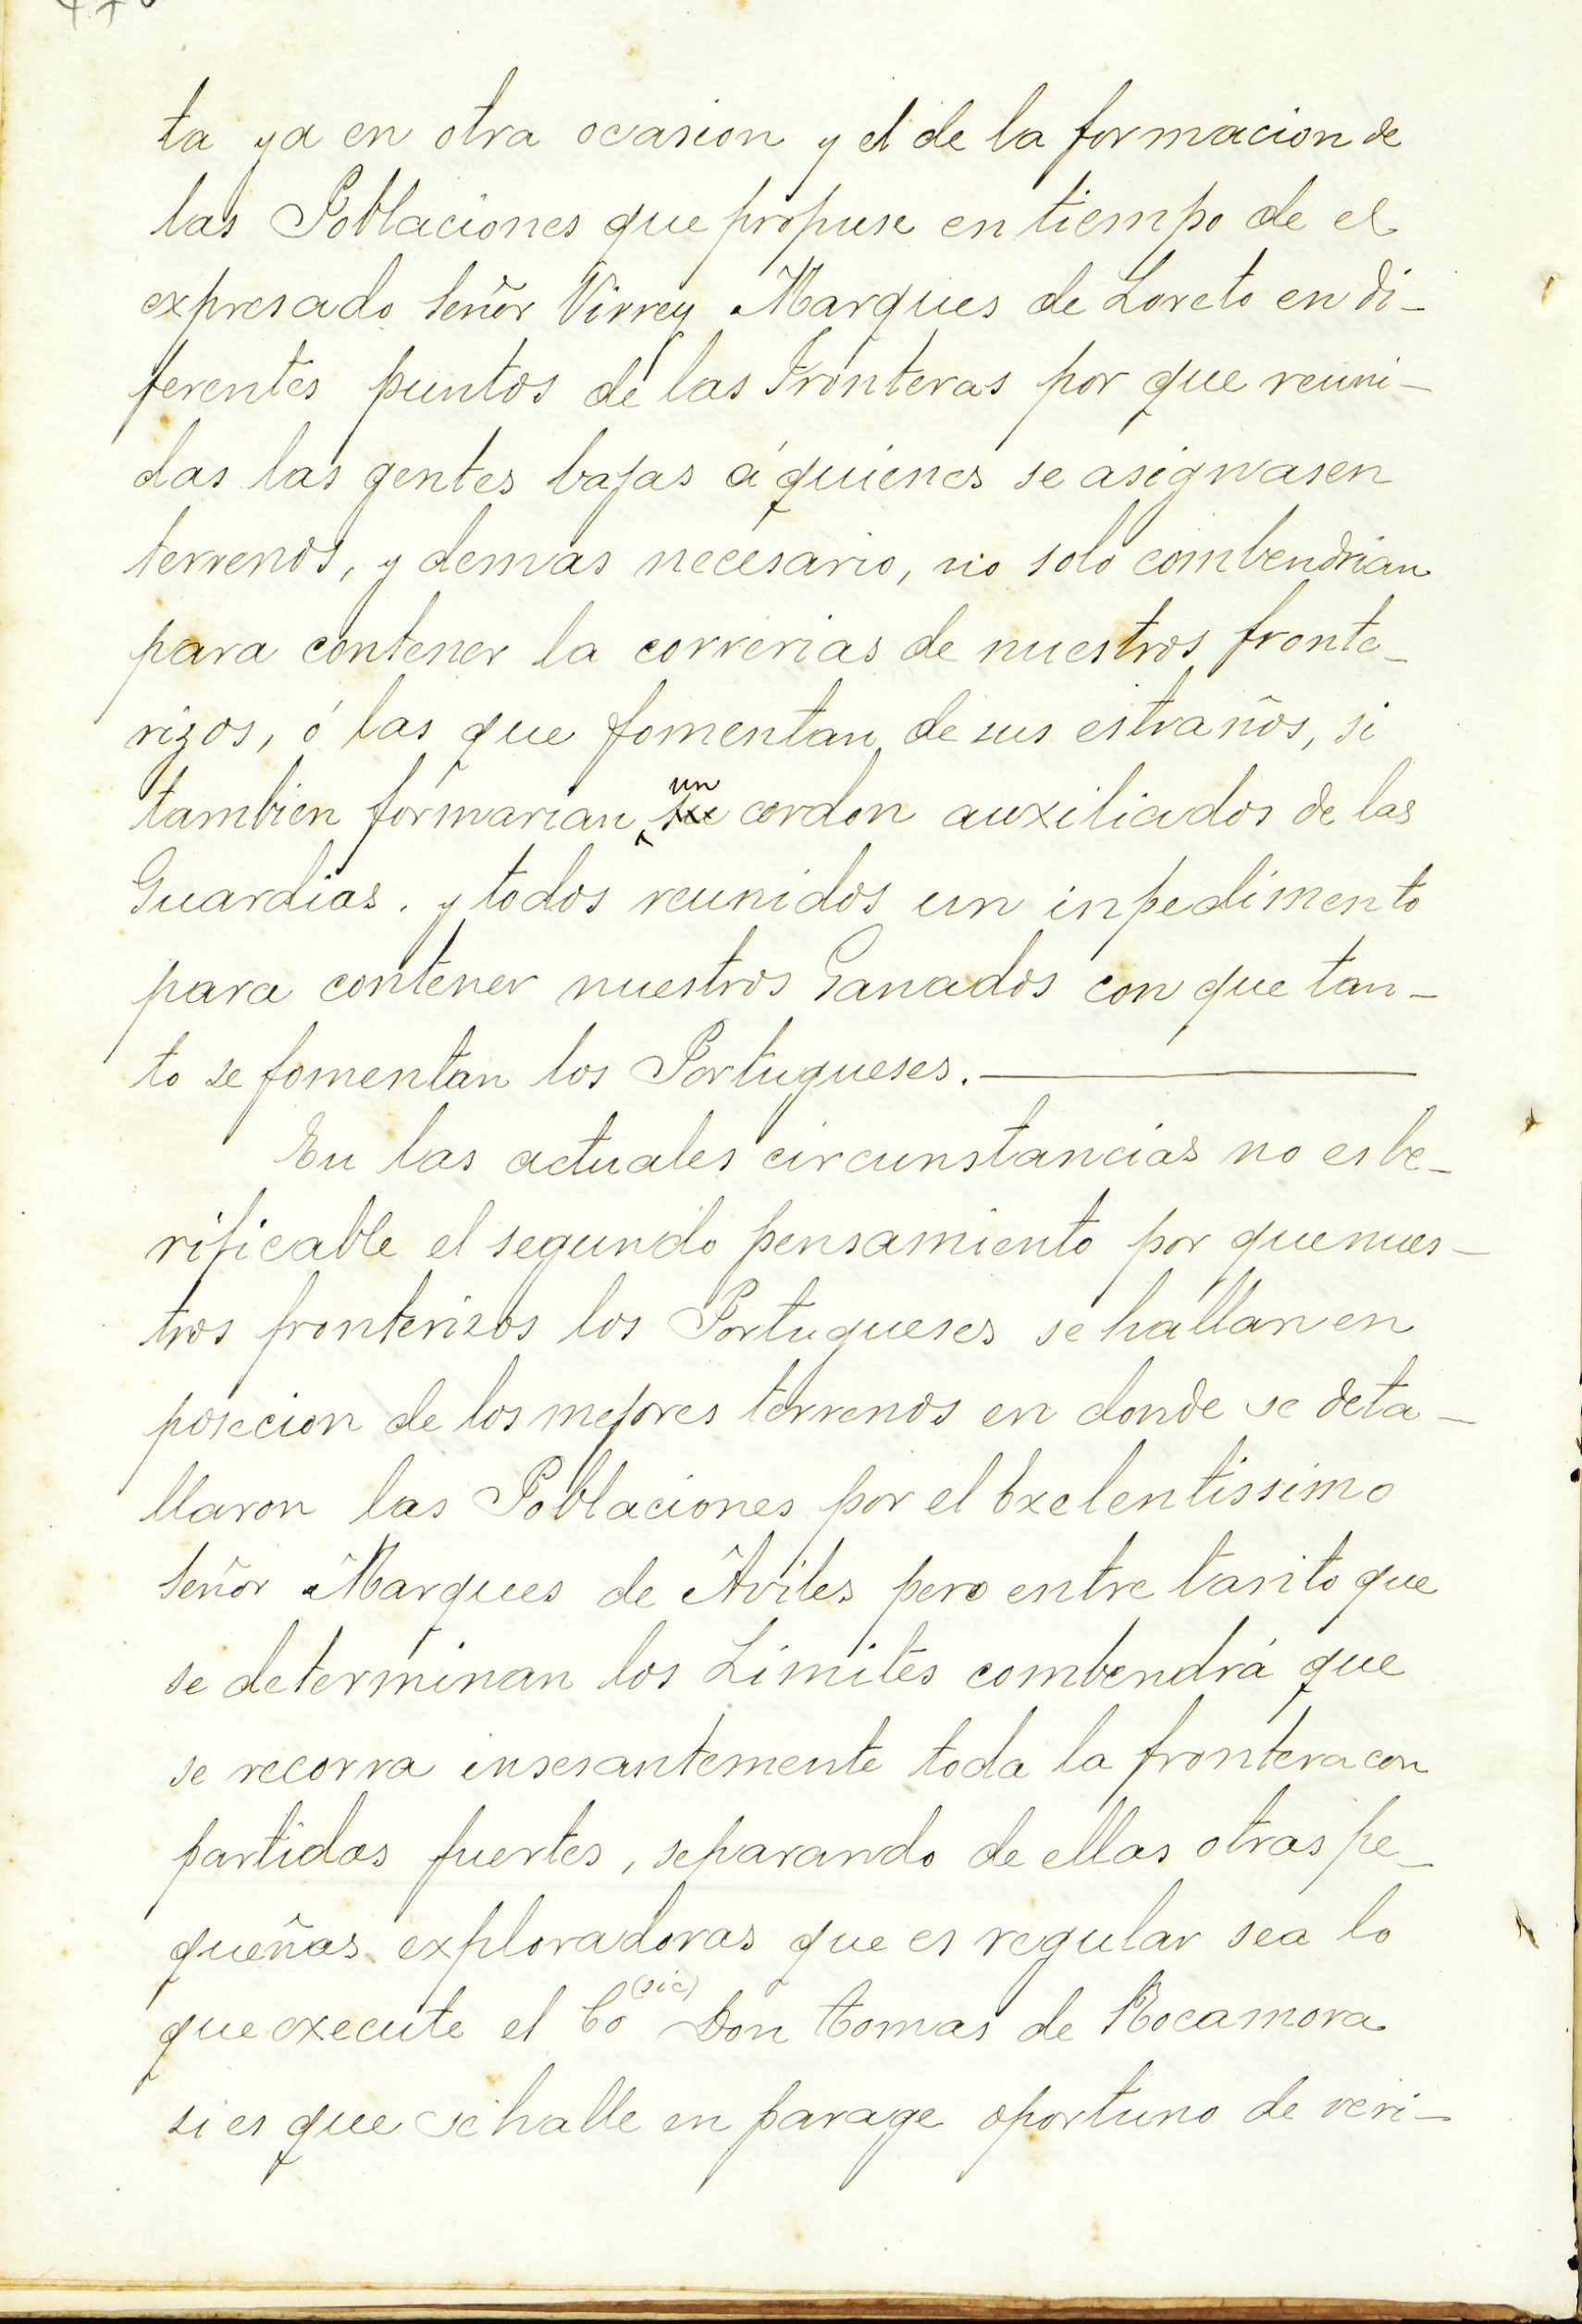 ta ya en otra ocasion y el de la formacion de
las Poblaciones que propuse en tiempo de el
expresado Señor Virrey Marques de Loreto en di-
ferentes puntos de las Fronteras por que reuni-
das las gentes bajas á quienes se asignasen
terrenos, y demas necesario, no solo combendrian
para contener la correrias de nuestros fronte-
rizos, ó las que fomentan de sus estraños, si
tambien formarian un cordon auxiliados de las
Guardias. y todos reunidos un inpedimento
para contener nuestros Ganados con que tan-
to se fomentan los Portugueses.
En las actuales circunstancias no es be-
rificable el segundo pensamiento por que nues-
tros fronterisos los Portugueses se hallan en
posecion de los mejores terrenos en donde se deta-
llaron las Poblaciones por el Exelentissimo
Señor Marques de Aviles pero entre tanto que
se determinan los Limites combendrá que
se recorra insesantemente toda la frontera con
partidas fuertes, separando de ellas otras pe-
queñas exploradoras que es regular sea lo
que execute el Co (sic) Don Tomas de Rocamora
si es que se halle en parage oportuno de veri-